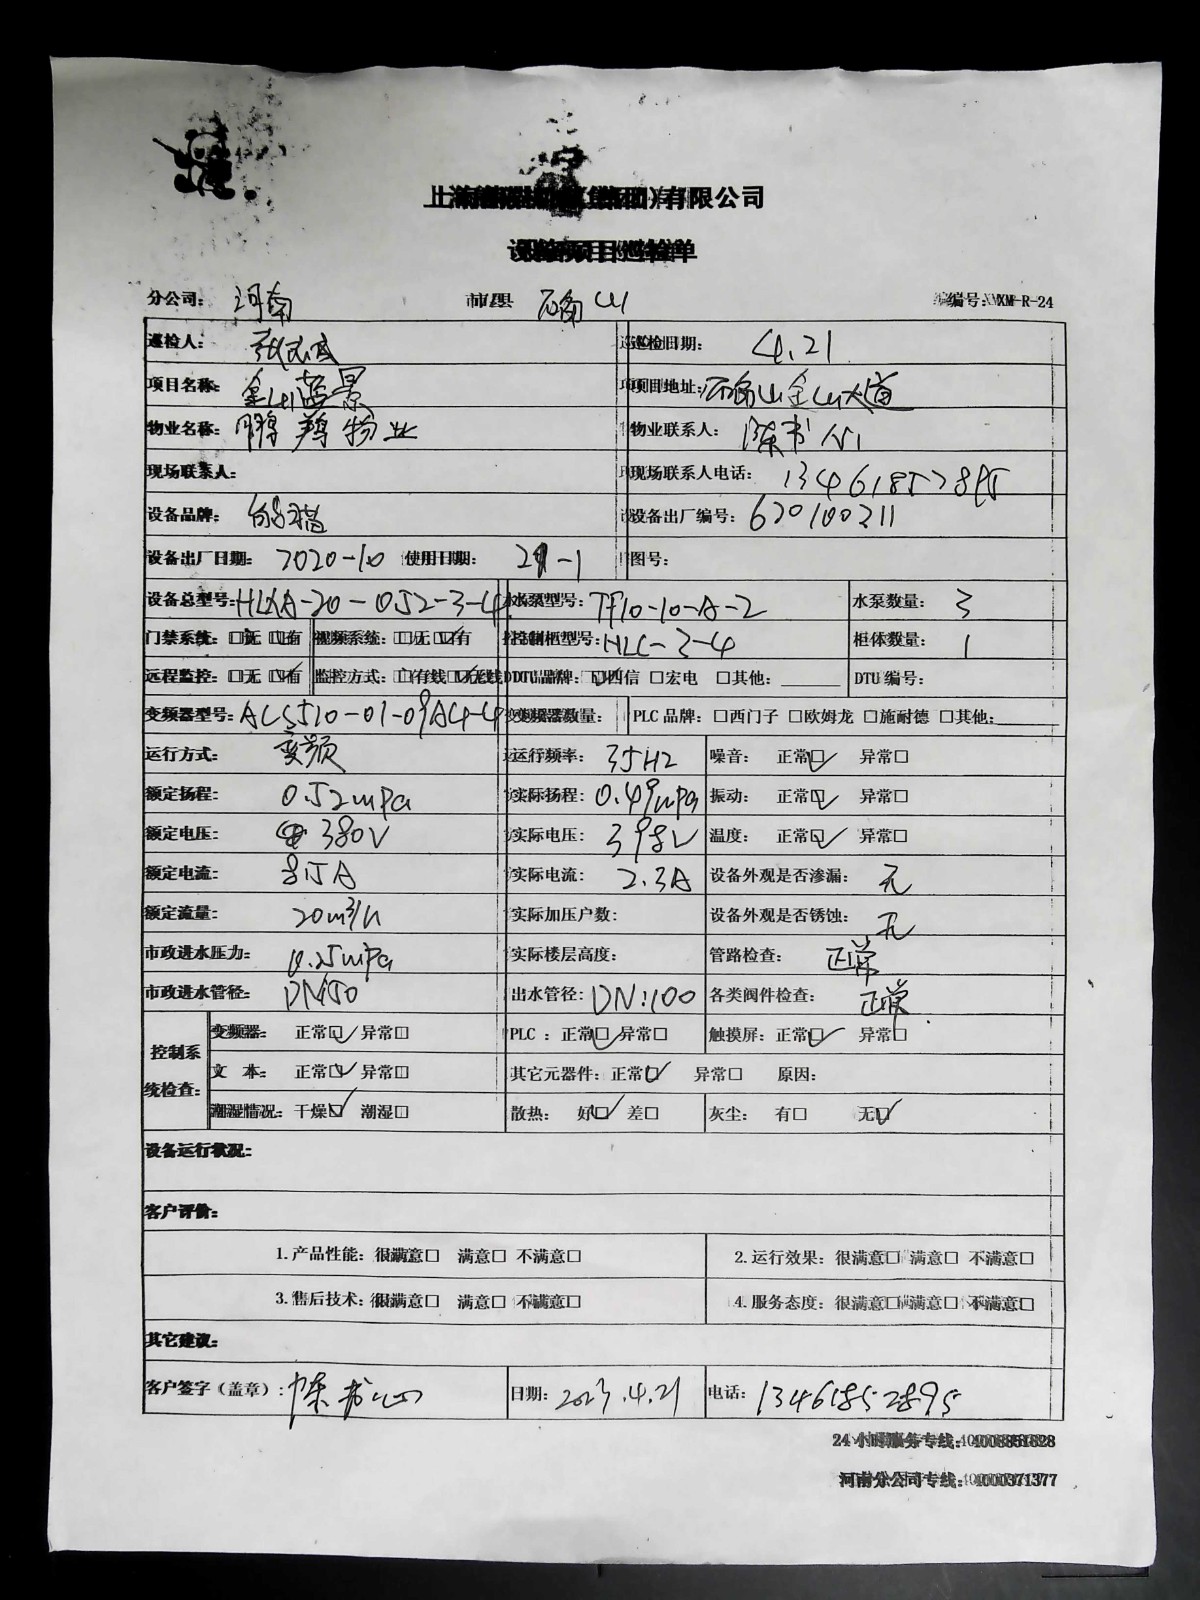 有限公司
设备项目巡检单
分公司: 河南 市区县 确山 编号: XM-R-24
巡检人: 巡检日期: 4.21
项目名称: 金山蓝景 项目地址: 确山金山大道
物业名称: 鹏翔物业 物业联系人: 陈书心
现场联系人: 现场联系人电话:
设备品牌: 熊猫 设备出厂编号: 620100211
设备出厂日期: 2020-10 使用日期: 21-1 图号:
设备总型号: HLXA-20-052-3-4 水泵型号: TF10-10-A-2 水泵数量: 3
门禁系统: □无 □有 视频系统: □无 □有 控制柜型号: HLC-3-4 柜体数量: 1
远程监控: □无 □有 监控方式: □有线 □无线 DTU品牌: □四信 □宏电 □其他: DTU编号:
变频器型号: ACS510-01-09A4-4 变频器数量: PLC 品牌: □西门子 □欧姆龙 □施耐德 □其他:
运行方式: 变频 运行频率: 35HZ 噪音: 正常□ 异常□
额定扬程: 0.52mpa 实际扬程: 0.49mpa 振动: 正常□ 异常□
额定电压: 380V 实际电压: 398V 温度: 正常□ 异常□
额定电流: 8.5A 实际电流: 2.3A 设备外观是否渗漏: 无
额定流量: 20m³/h 实际加压户数: 设备外观是否锈蚀: 无
市政进水压力: 0.25mpa 实际楼层高度: 管路检查: 正常
市政进水管径: DN150 出水管径: DN:100 各类阀件检查: 正常
控制系统检查: 变频器: 正常□ 异常□ PLC: 正常□ 异常□ 触摸屏: 正常□ 异常□
文 本: 正常□ 异常□ 其它元器件: 正常□ 异常□ 原因:
潮湿情况: 干燥□ 潮湿□ 散热: 好□ 差□ 灰尘: 有□ 无□
设备运行状况:
客户评价:
1.产品性能: 很满意□ 满意□ 不满意□ 2.运行效果: 很满意□ 满意□ 不满意□
3.售后技术: 很满意□ 满意□ 不满意□ 4.服务态度: 很满意□ 满意□ 不满意□
其它建议:
客户签字（盖章）: 陈书心 日期: 2023.4.21 电话: 13461852895
24 小时服务专线: 4008851628
河南分公司专线: 4000371377